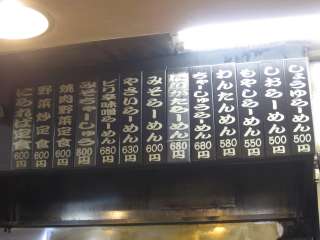 しょうゆらーめん 500円
しおらーめん 500円
もやしらーめん 550円
わんたんめん 580円
ちゃーしゅうめん 680円
らーめん 680円
みそらーめん 600円
やさいらーめん 630円
ピリ辛味噌らーめん 680円
みそちゃーしゅう 800円
焼肉野菜定食 600円
野菜炒定食 600円
にられば定食 600円